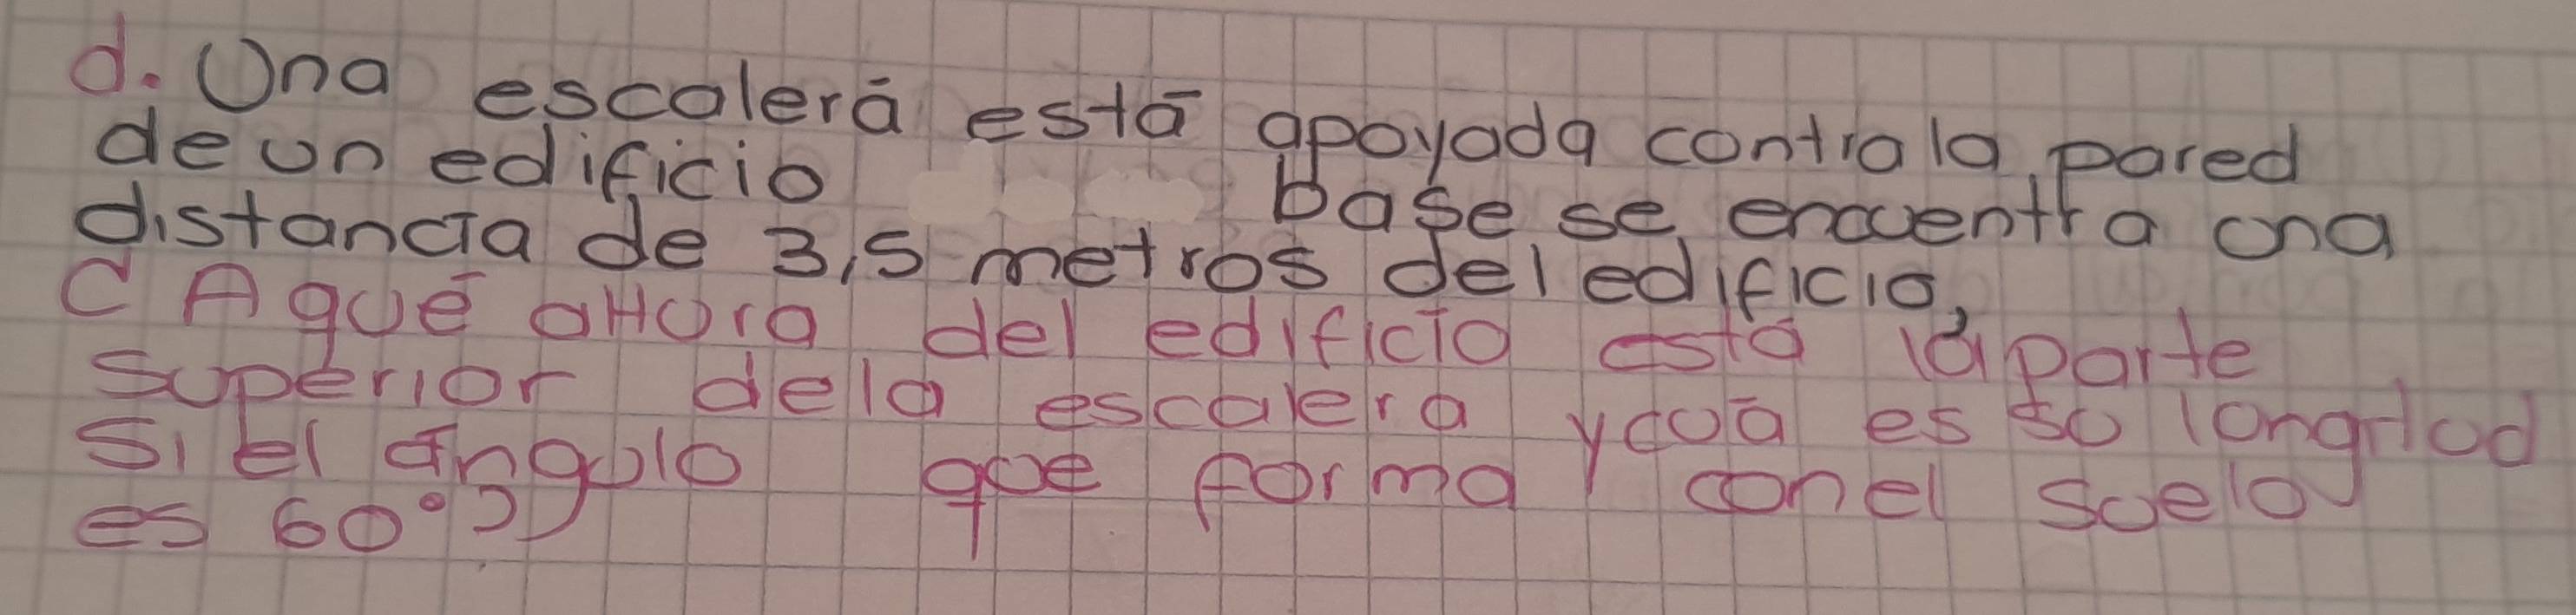 d. Una escalerá está apoyada contra la pared
de un edificio base se encuentra una
distancia de 3,5 metros del edificio,
¿ A qué altura del edificio está la parte
superior de la escalera y cuá es su longitud
si el ángulo que forma con el suelo
es 60°??